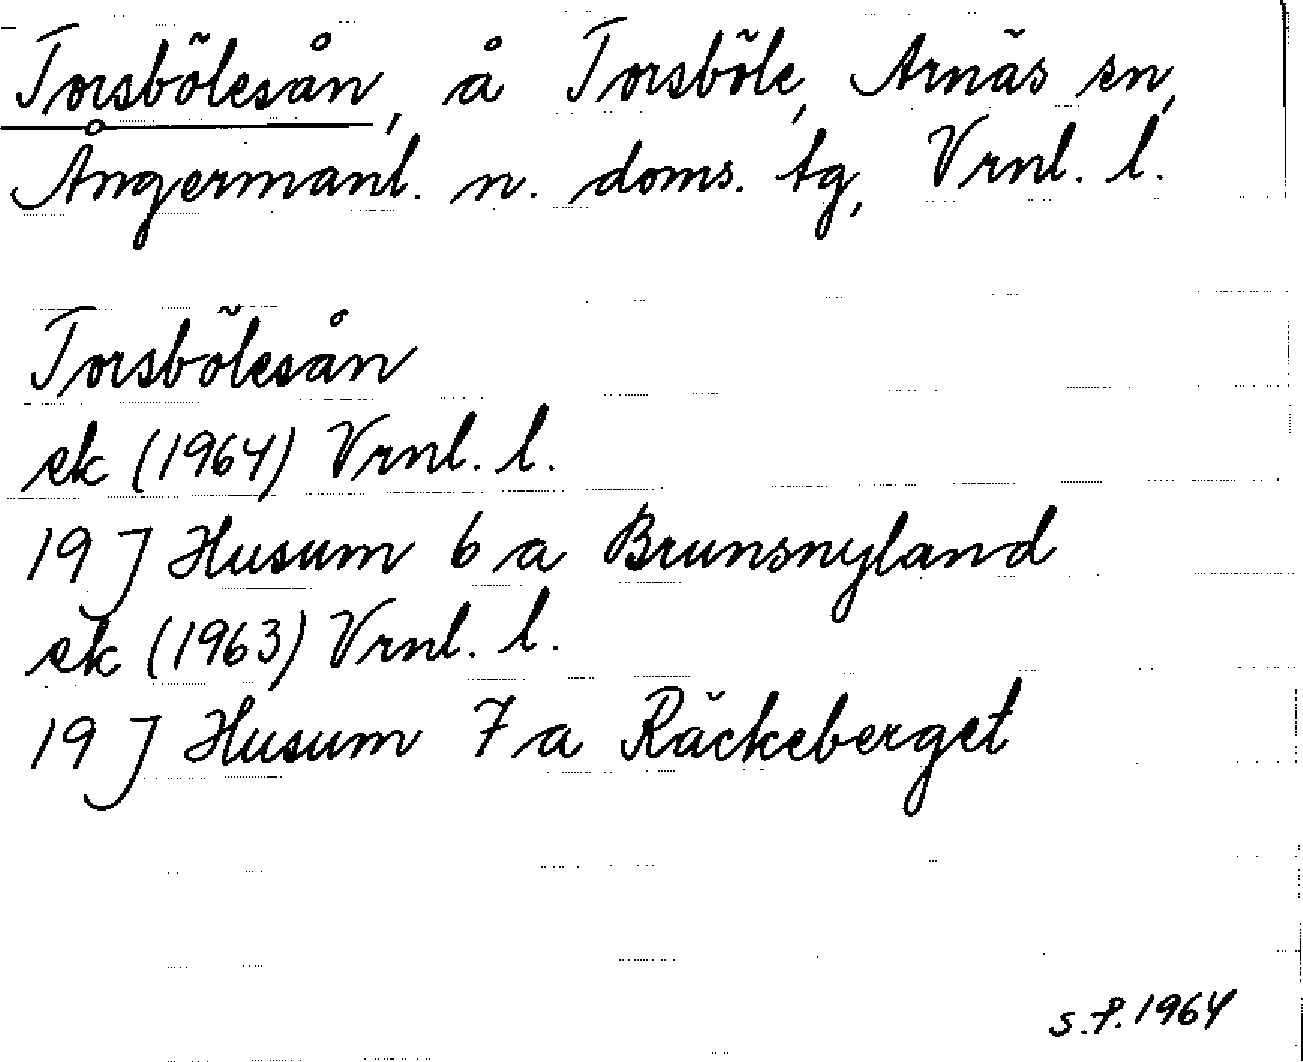 Torsbölesån, å Torsböle, Arnäs sn,
Ångermanl. n. doms. tg, Vrnl. l.
Torsbölesån
ek (1964) Vrnl. l.
19 J Husum 6 a Brunsnyland
ek (1963) Vrnl. l.
19 J Husum 7 a Räckeberget
s.P. 1964